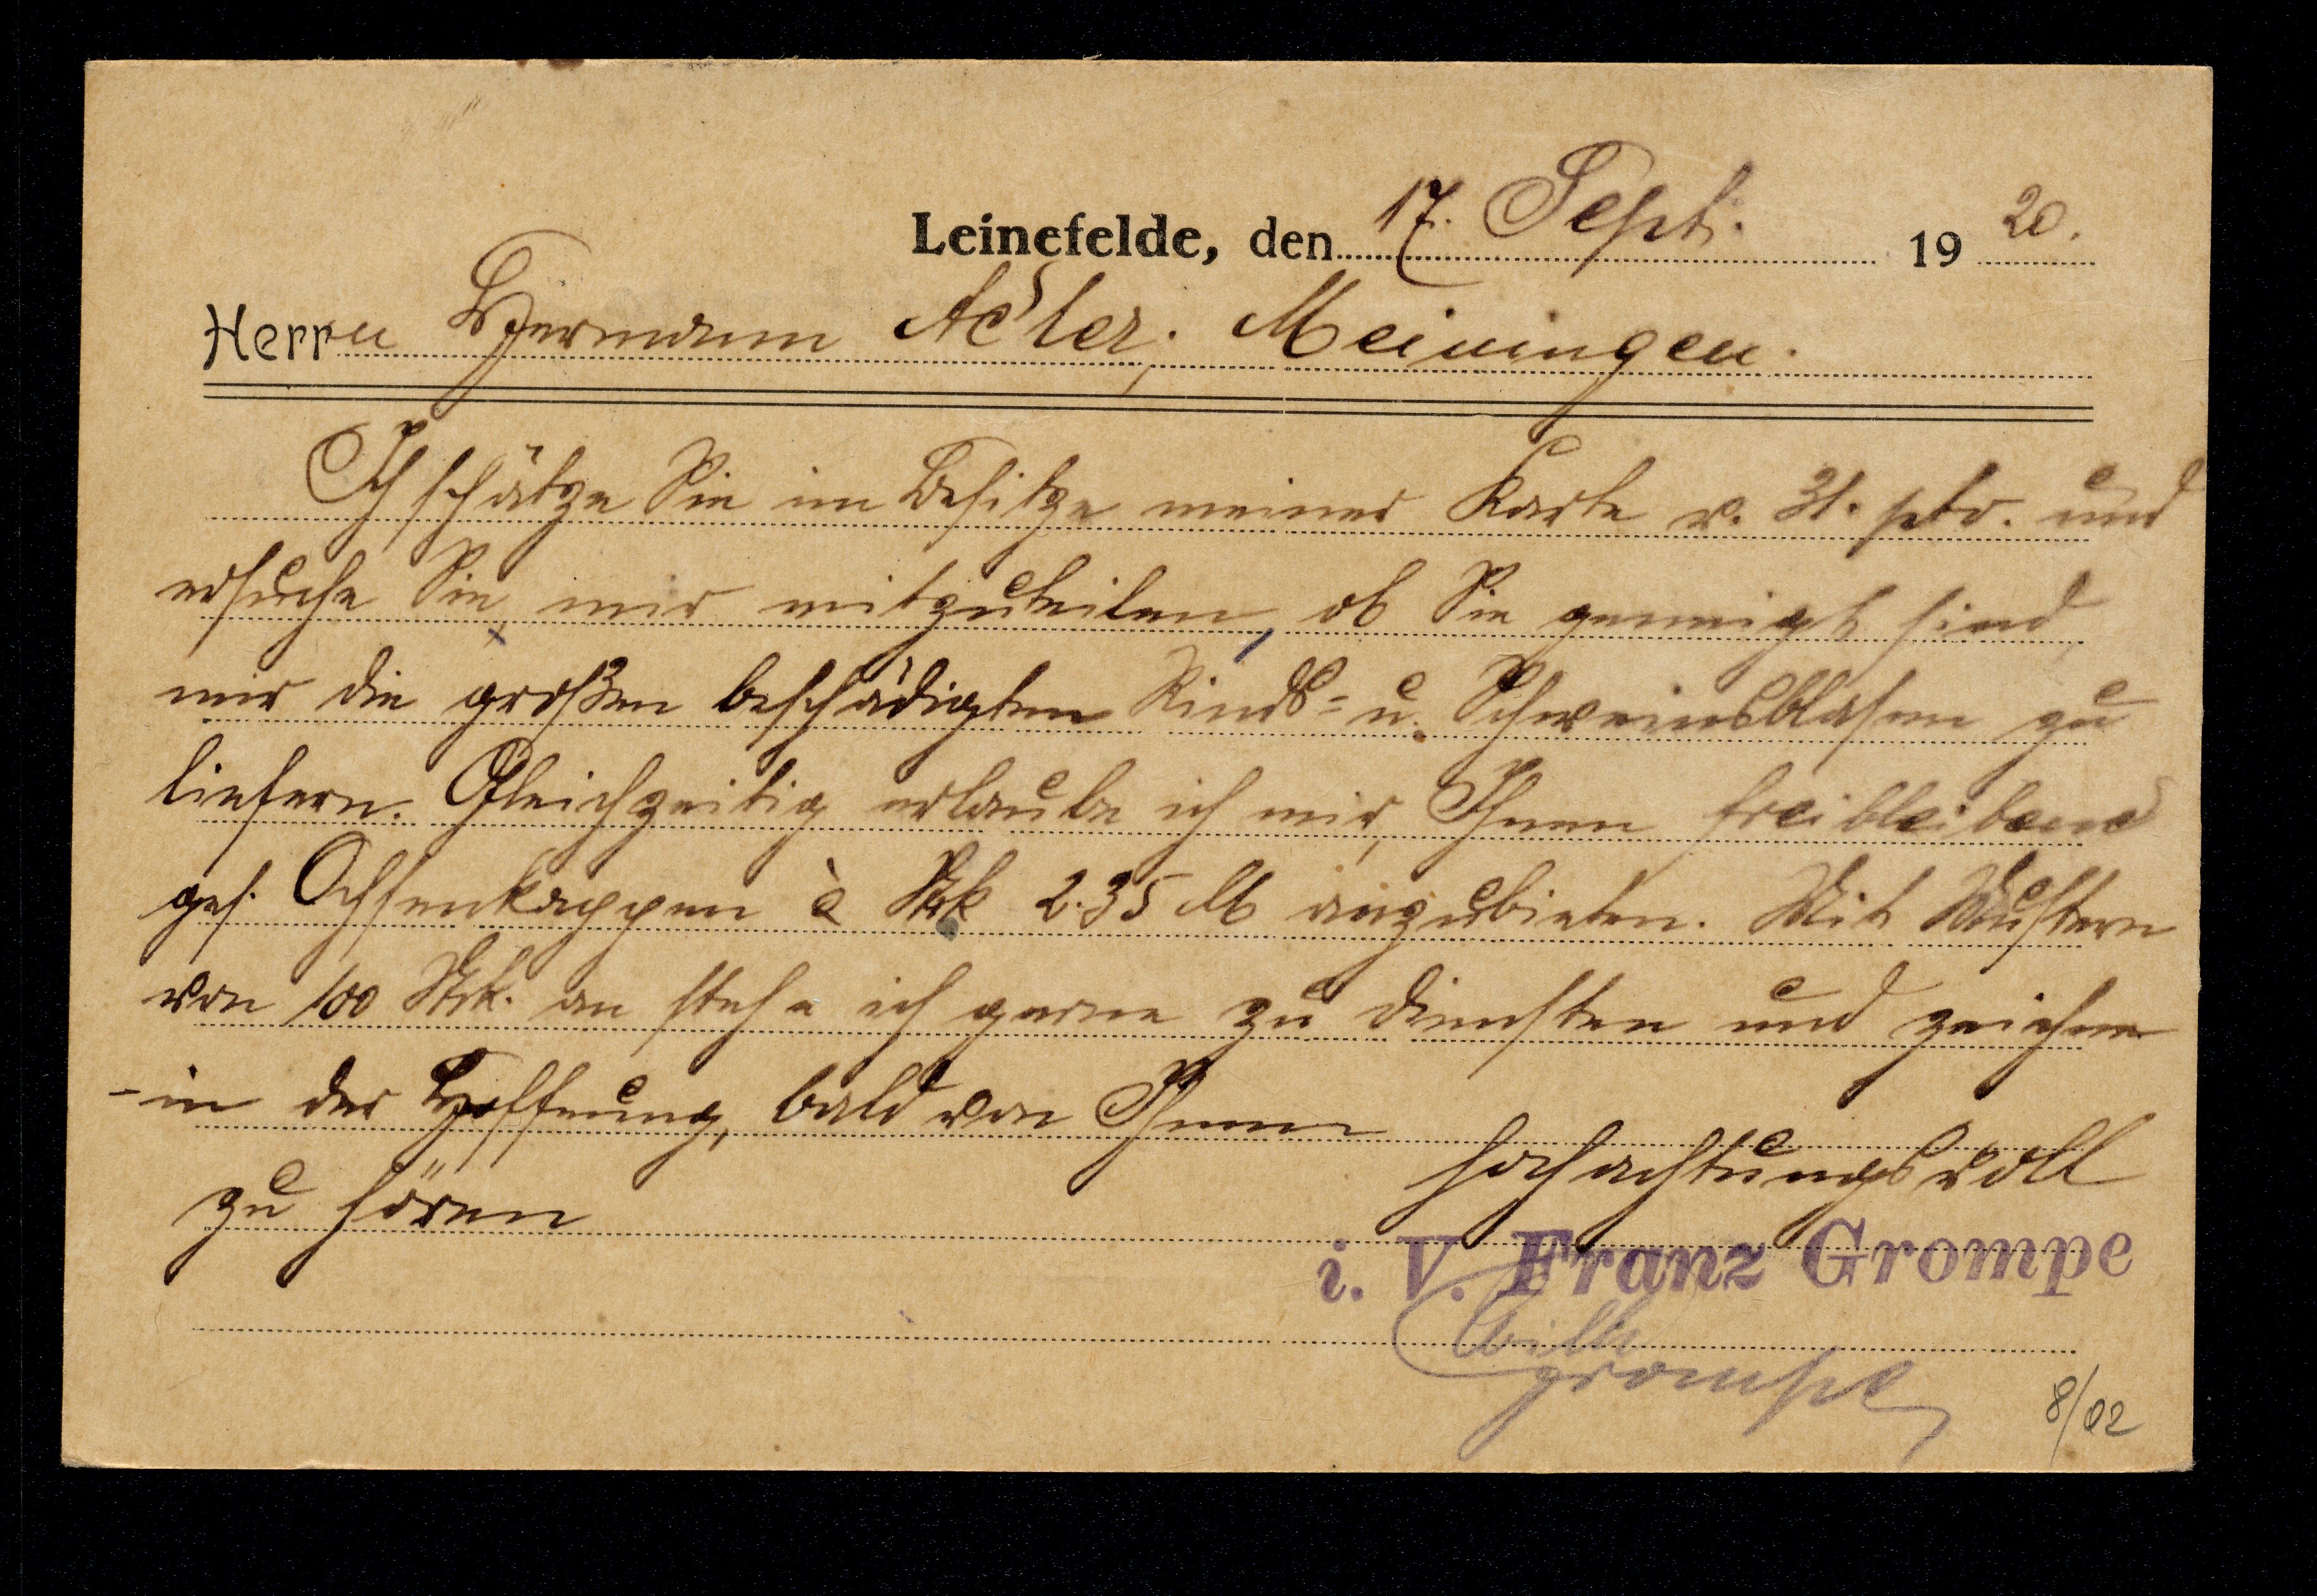 Leinefelde, den 17. Sept. 19 20.
Herrn Hermann Adler, Meiningen.
Ich schätze Sie im Besitze meiner Karte v. 31. pto. und
ersuche Sie, mir mitzuteilen, ob Sie geneigt sind
mir die großen beschädigten Rinds- u. Schweinsblasen zu
liefern. Gleichzeitig erlaube ich mir, Ihnen freibleibend
ges. Ochsenkappen à Stck 2.35 M anzubieten. Mit Mustern
von 100 Stck. an stehe ich gerne zu diensten und zeichne
- in der Hoffnung, bald von Ihnen
zu hören
hochachtungsvoll
i. V. Franz Grompe
Wilh
Grompe
8/02